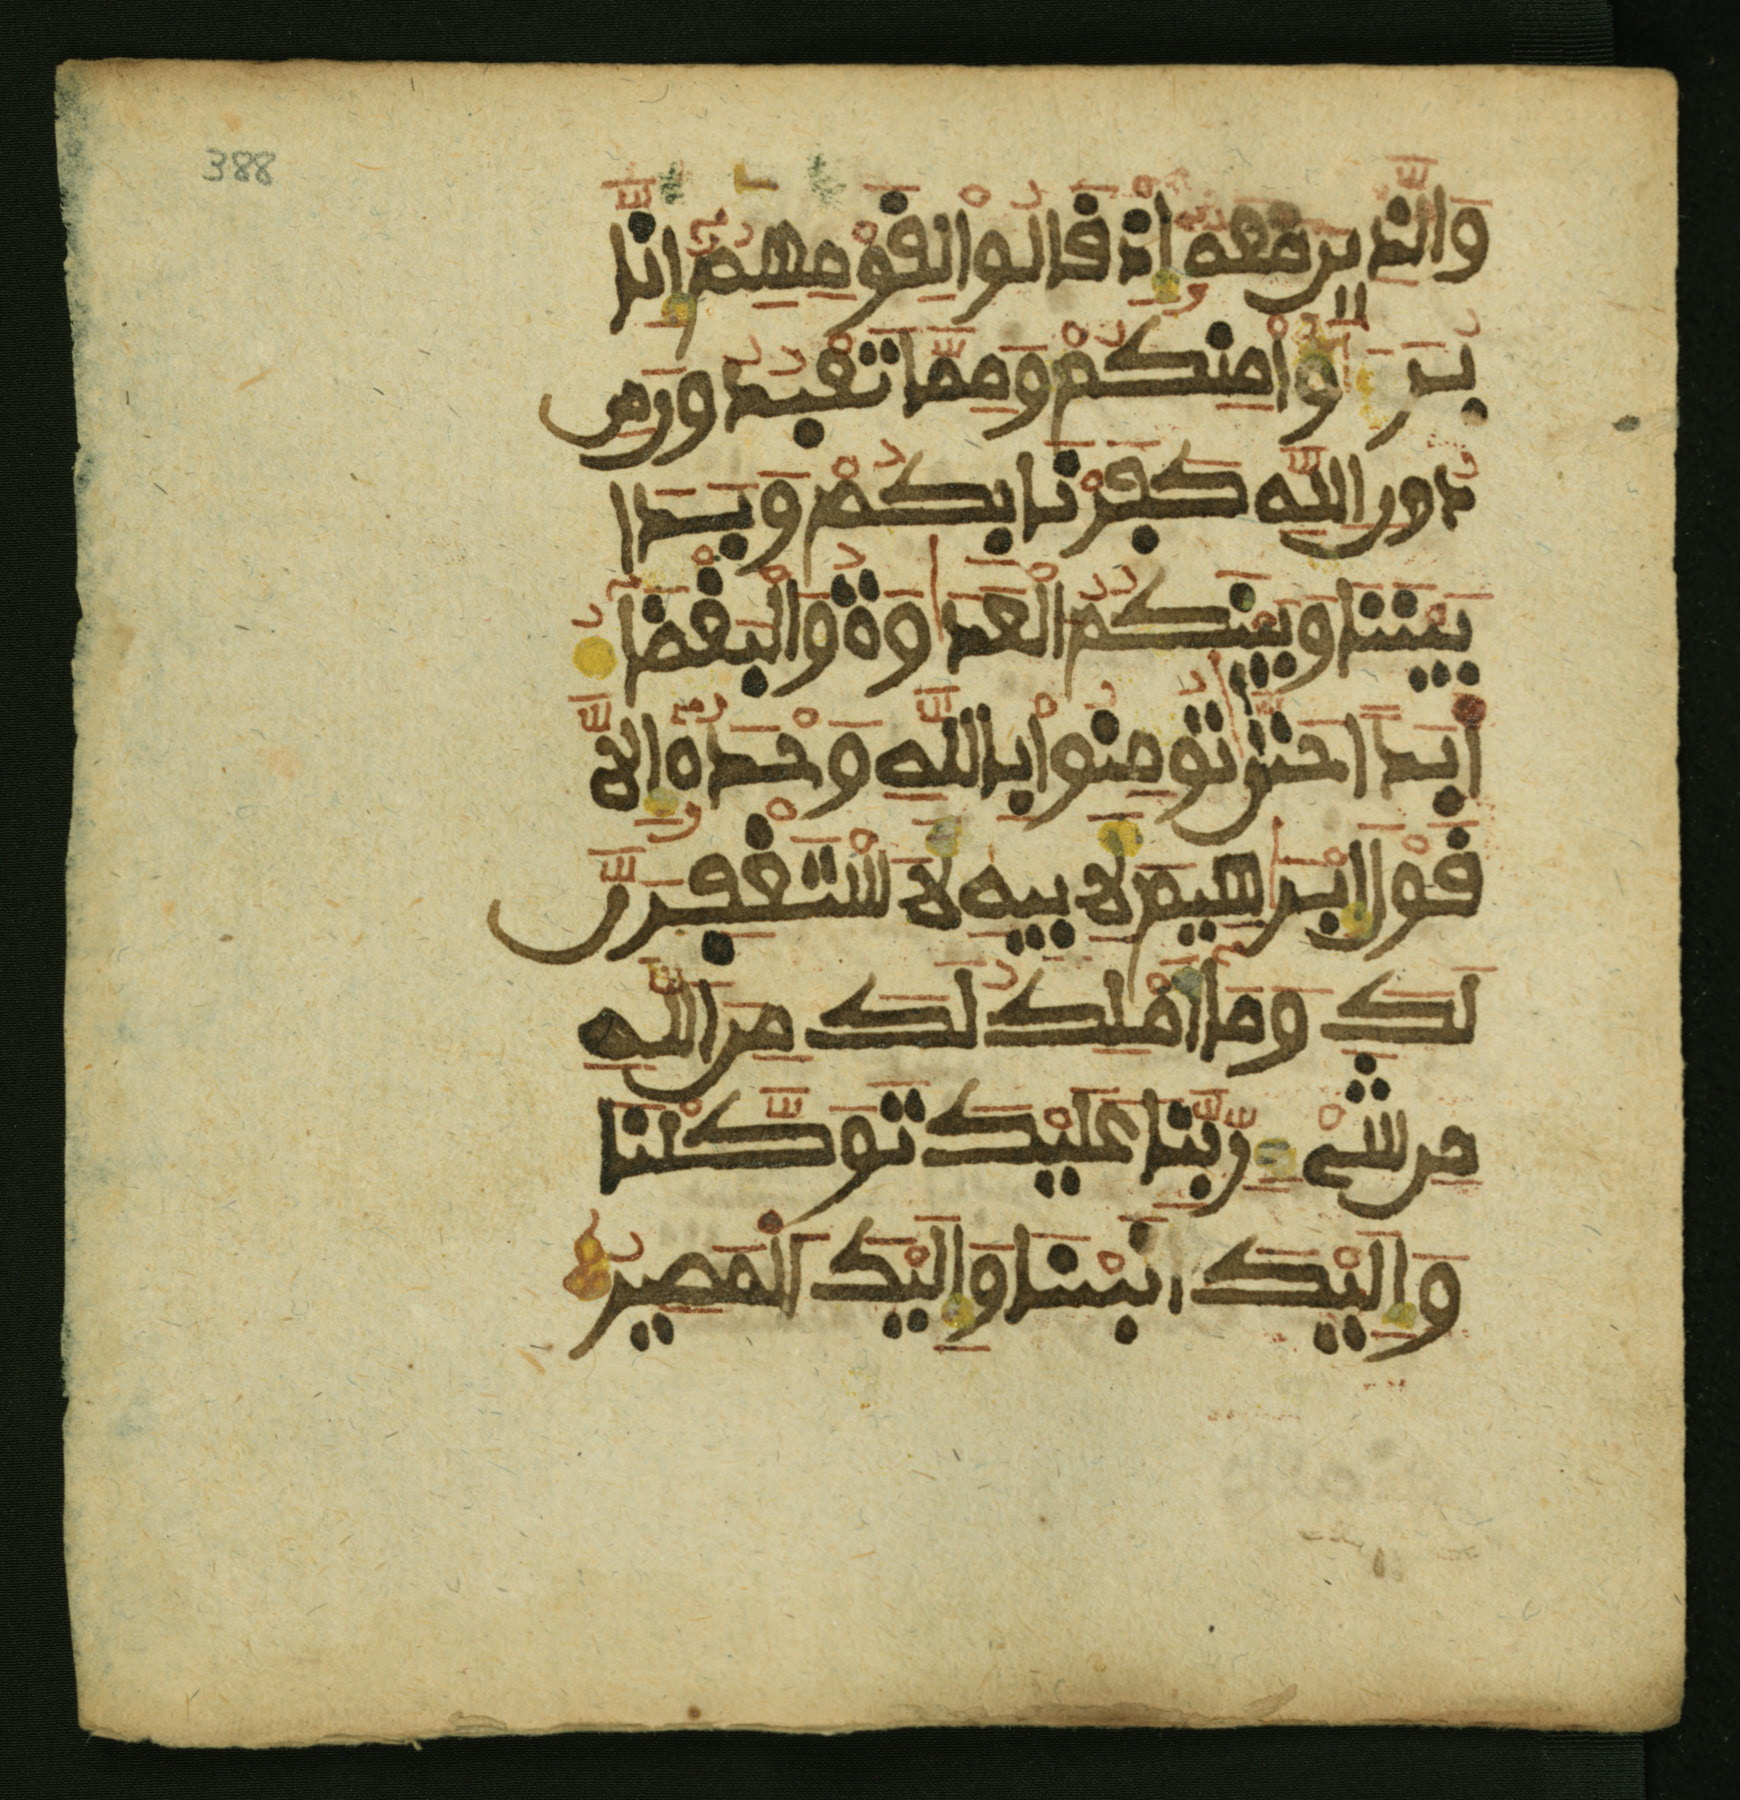 388
وَالَّذِينَ مَعَهُ إِذْ قَالُواْ لِقَوْمِهِمُ إِنَّا
بُرَءَٰٓؤُاْ مِنكُمْ وَمِمَّا تَعْبُدُونَ مِن
دُونِ اللَّهِ كَفَرْنَا بِكُمْ وَبَدَا
بَيْنَنَا وَبَيْنَكُمُ الْعَدَٰوَةُ وَالْبَغْضَآءُ
أَبَداً حَتَّىٰ تُومِنُواْ بِاللَّهِ وَحْدَهُ إِلَّا
قَوْلَ إِبْرَٰهِيمَ لِأَبِيهِ لَأَسْتَغْفِرَنَّ
لَكَ وَمَا أَمْلِكُ لَكَ مِنَ اللَّهِ
مِن شَيْءٍ رَّبَّنَا عَلَيْكَ تَوَكَّلْنَا
وَإِلَيْكَ أَنَبْنَا وَإِلَيْكَ الْمَصِيرُ